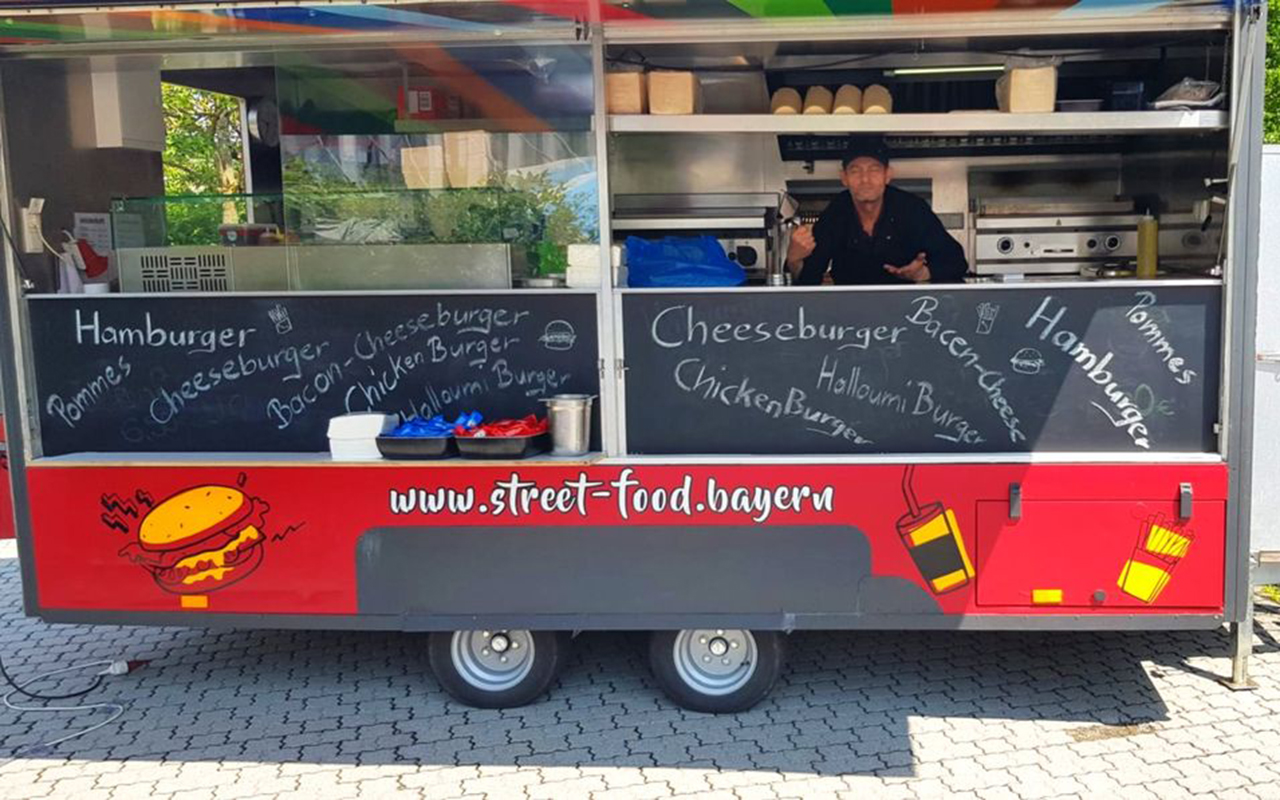 Hamburger
Pommes
Cheeseburger
Bacon-Cheeseburger
Chicken Burger
Halloumi Burger
Cheeseburger
Bacen-Cheese
Hamburger
Pommes
Chicken Burger
Halloumi Burger
www.street-food.bayern